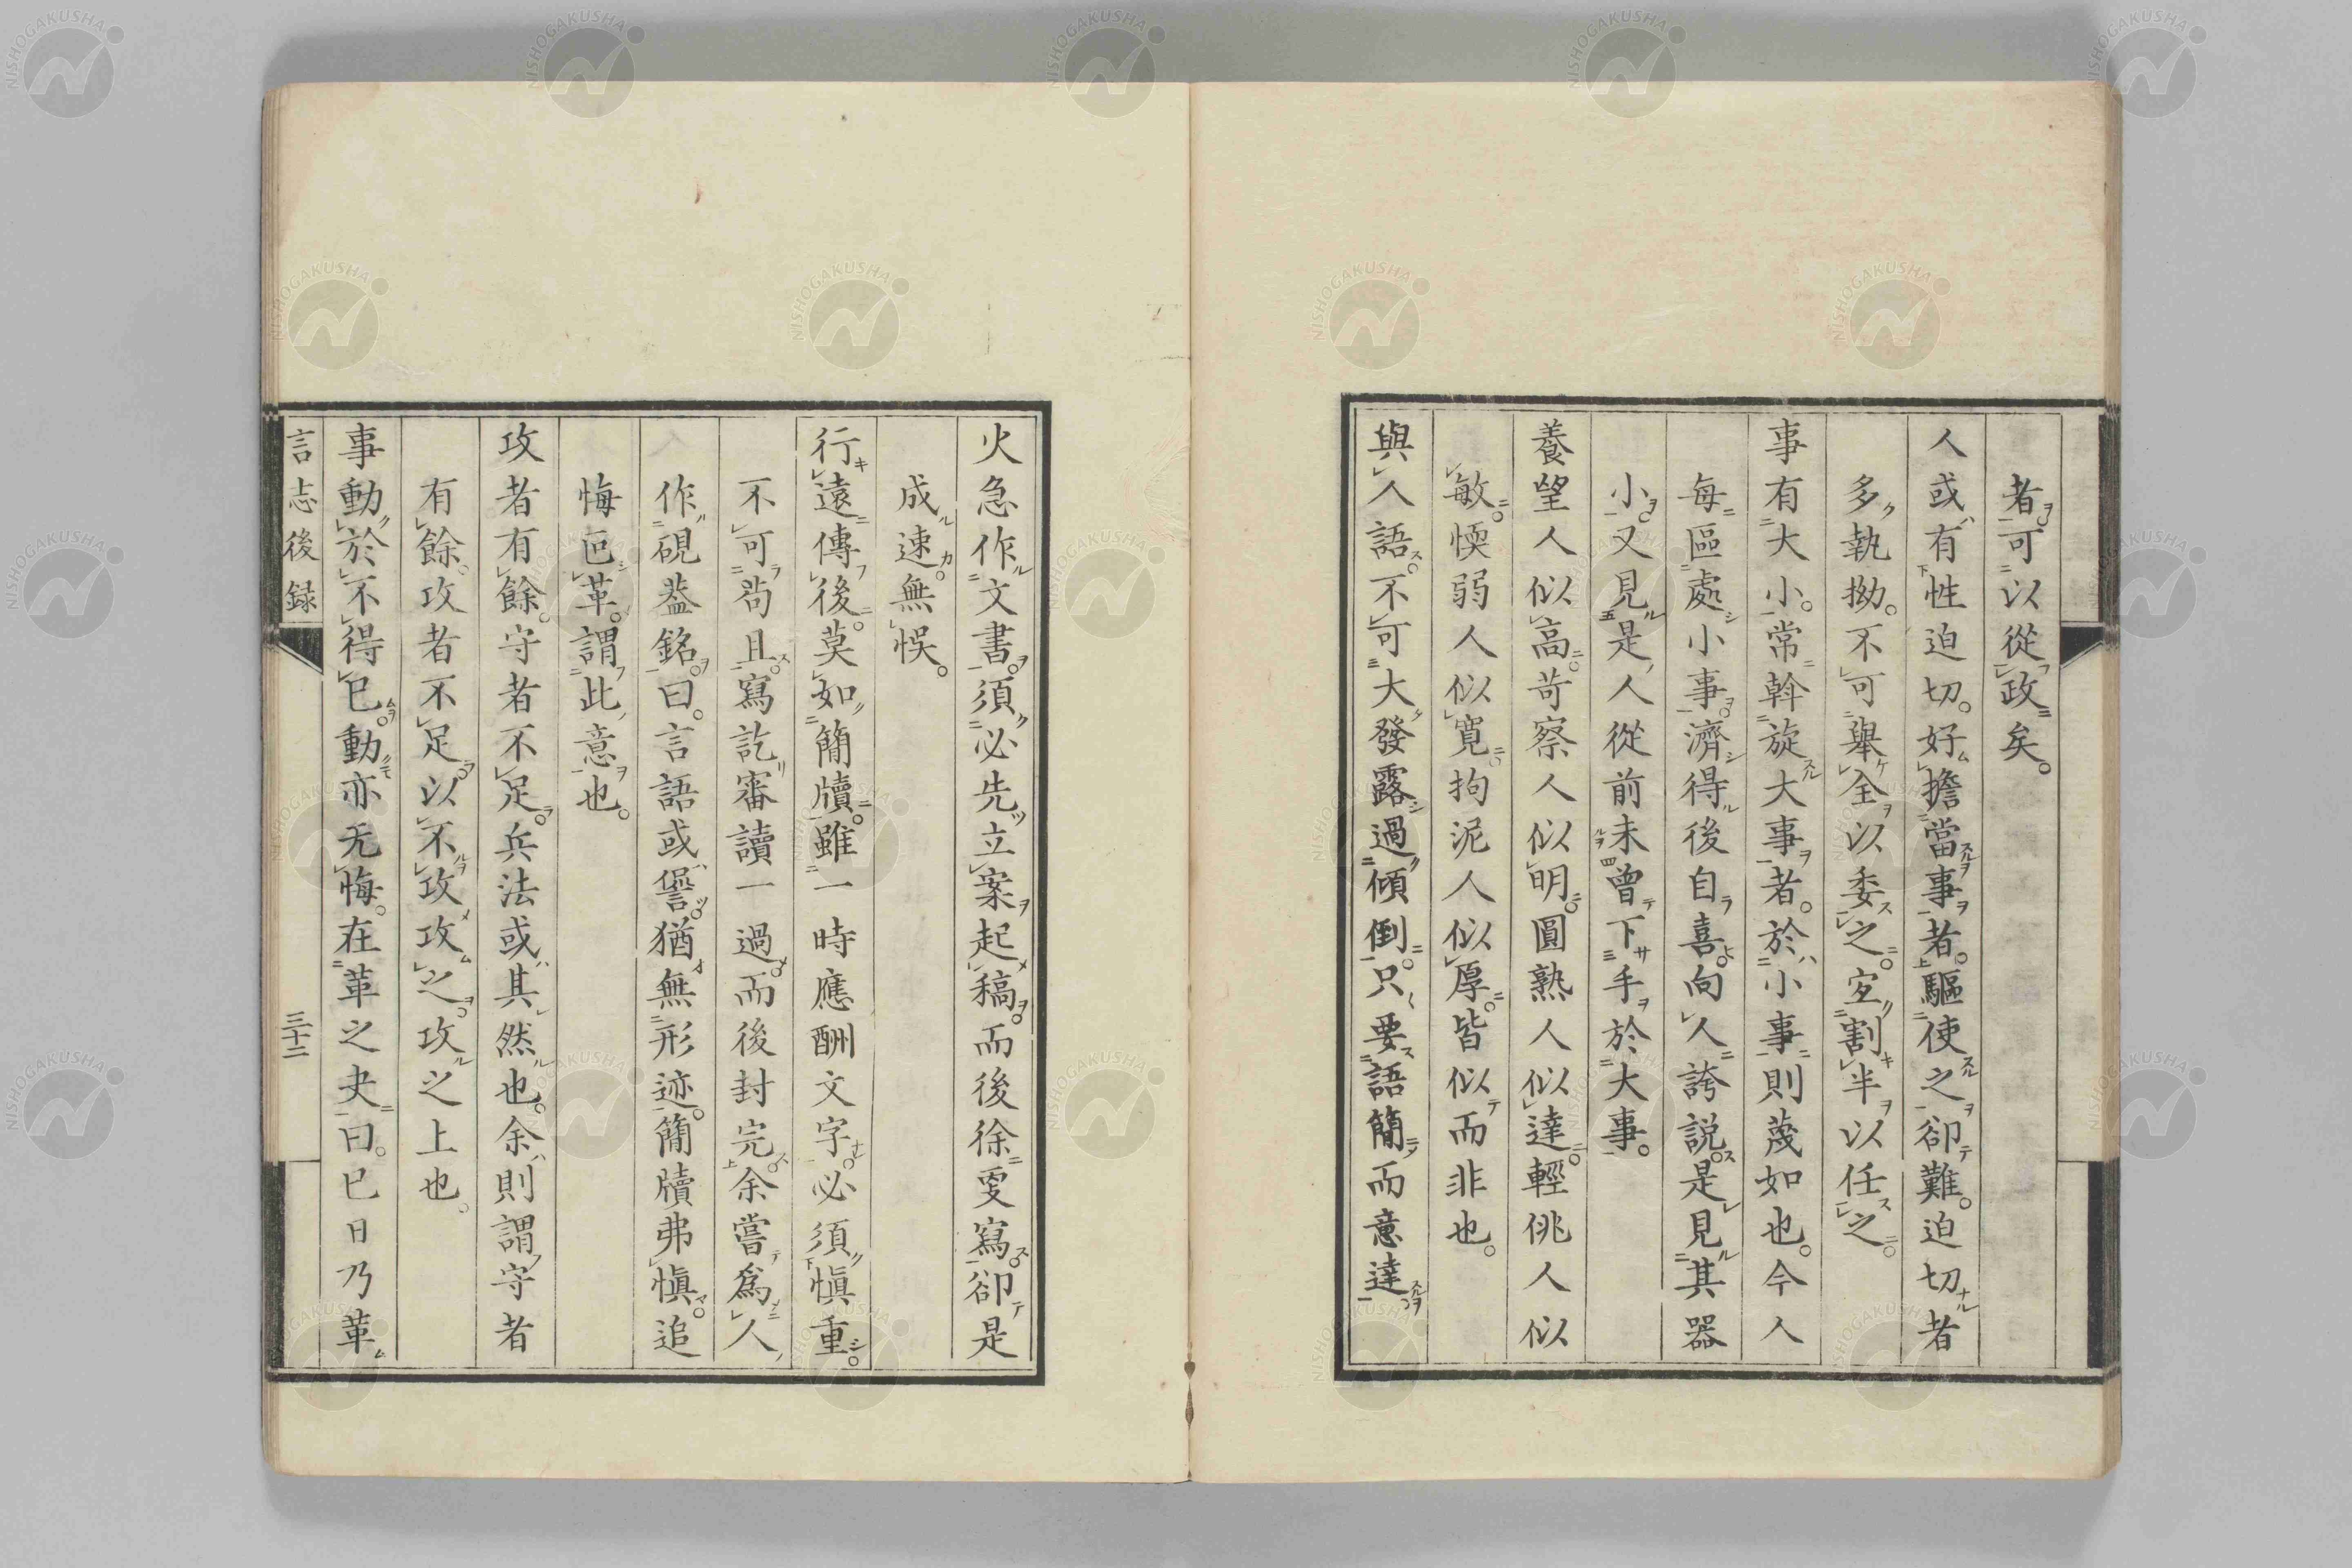 者可以從政矣。
人或有性迫切。好擔當事者。驅使之卻難。迫切者
多執拗。不可擧全以委之。宜割半以任之。
事有大小。常斡旋大事者。於小事則蔑如也。今人
每區處小事。濟得後自喜。向人誇説。是見其器
小。又見是人從前未曾下手於大事。
養望人似高。苛察人似明。圓熟人似達。輕佻人似
敏。愞弱人似寬。拘泥人似厚。皆似而非也。
與人語。不可大發露過傾倒。只要語簡而意達。
火急作文書。須必先立案起稿。而後徐更寫。卻是
成速。無悞。
行遠傳後。莫如簡牘。雖一時應酬文字。必須愼重。
不可苟且。寫訖審讀一過。而後封完。余嘗爲人
作硯葢銘。曰。言語或愆。猶無形迹。簡牘弗愼。追
悔叵革。謂此意也。
攻者有餘。守者不足。兵法或其然也。余則謂守者
有餘。攻者不足。以不攻攻之。攻之上也。
事動於不得已。動亦无悔。在革之夬。曰。已日乃革
言志後録
三十二
NISHOGAKUSHA